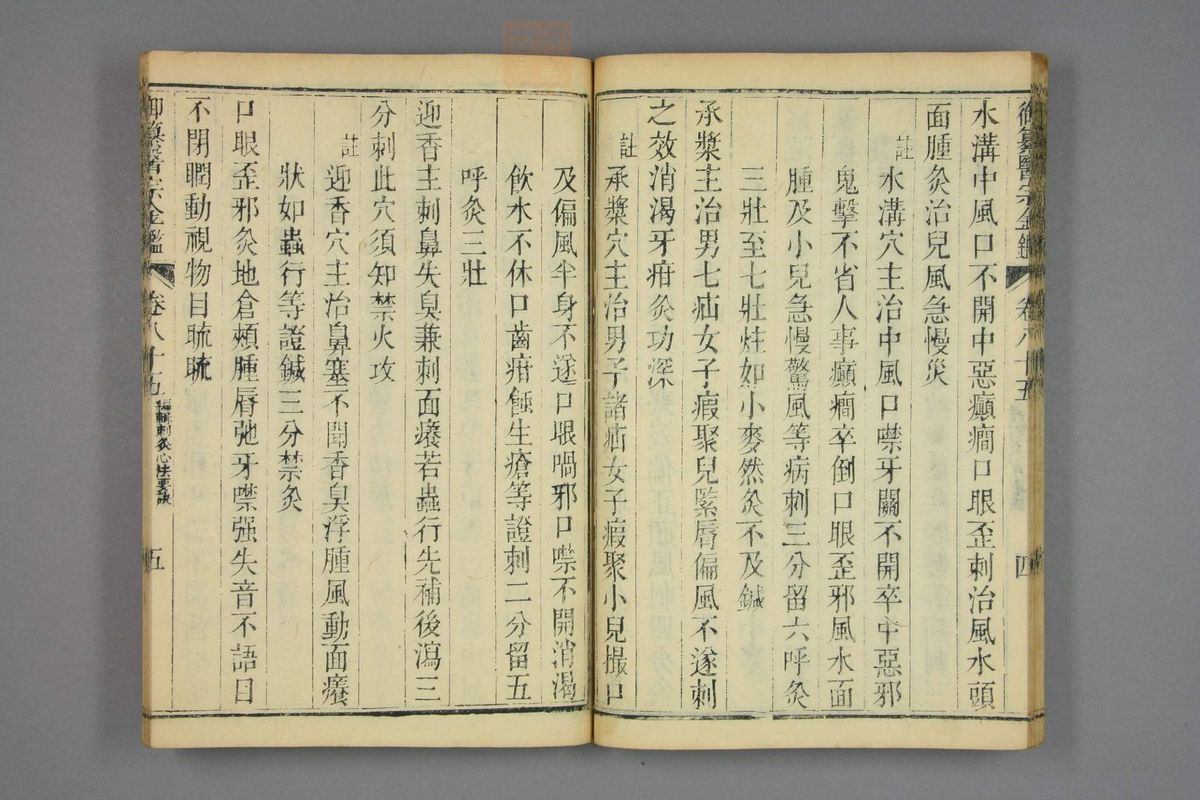 御纂醫宗金鑑 卷八十五 四
水溝中風口不開中惡癲癎口眼歪刺治風水頭
面腫灸治兒風急慢災
註 水溝穴主治中風口噤牙關不開卒中惡邪
鬼擊不省人事癲癎卒倒口眼歪邪風水面
腫及小兒急慢驚風等病刺三分留六呼灸
三壯至七壯炷如小麥然灸不及鍼
承漿主治男七疝女子瘕聚兒緊唇偏風不遂刺
之效消渴牙疳灸功深
註 承漿穴主治男子諸疝女子瘕聚小兒撮口
及偏風半身不遂口眼喎邪口噤不開消渴
飲水不休口齒疳蝕生瘡等證刺二分留五
呼灸三壯
迎香主刺鼻失臭兼刺面癢若蟲行先補後瀉三
分刺此穴須知禁火攻
註 迎香穴主治鼻塞不聞香臭浮腫風動面癢
狀如蟲行等證鍼三分禁灸
口眼歪邪灸地倉頰腫唇弛牙噤强失音不語目
不閉瞤動視物目䀮䀮
御纂醫宗金鑑 卷八十五 編輯刺灸心法要訣 五